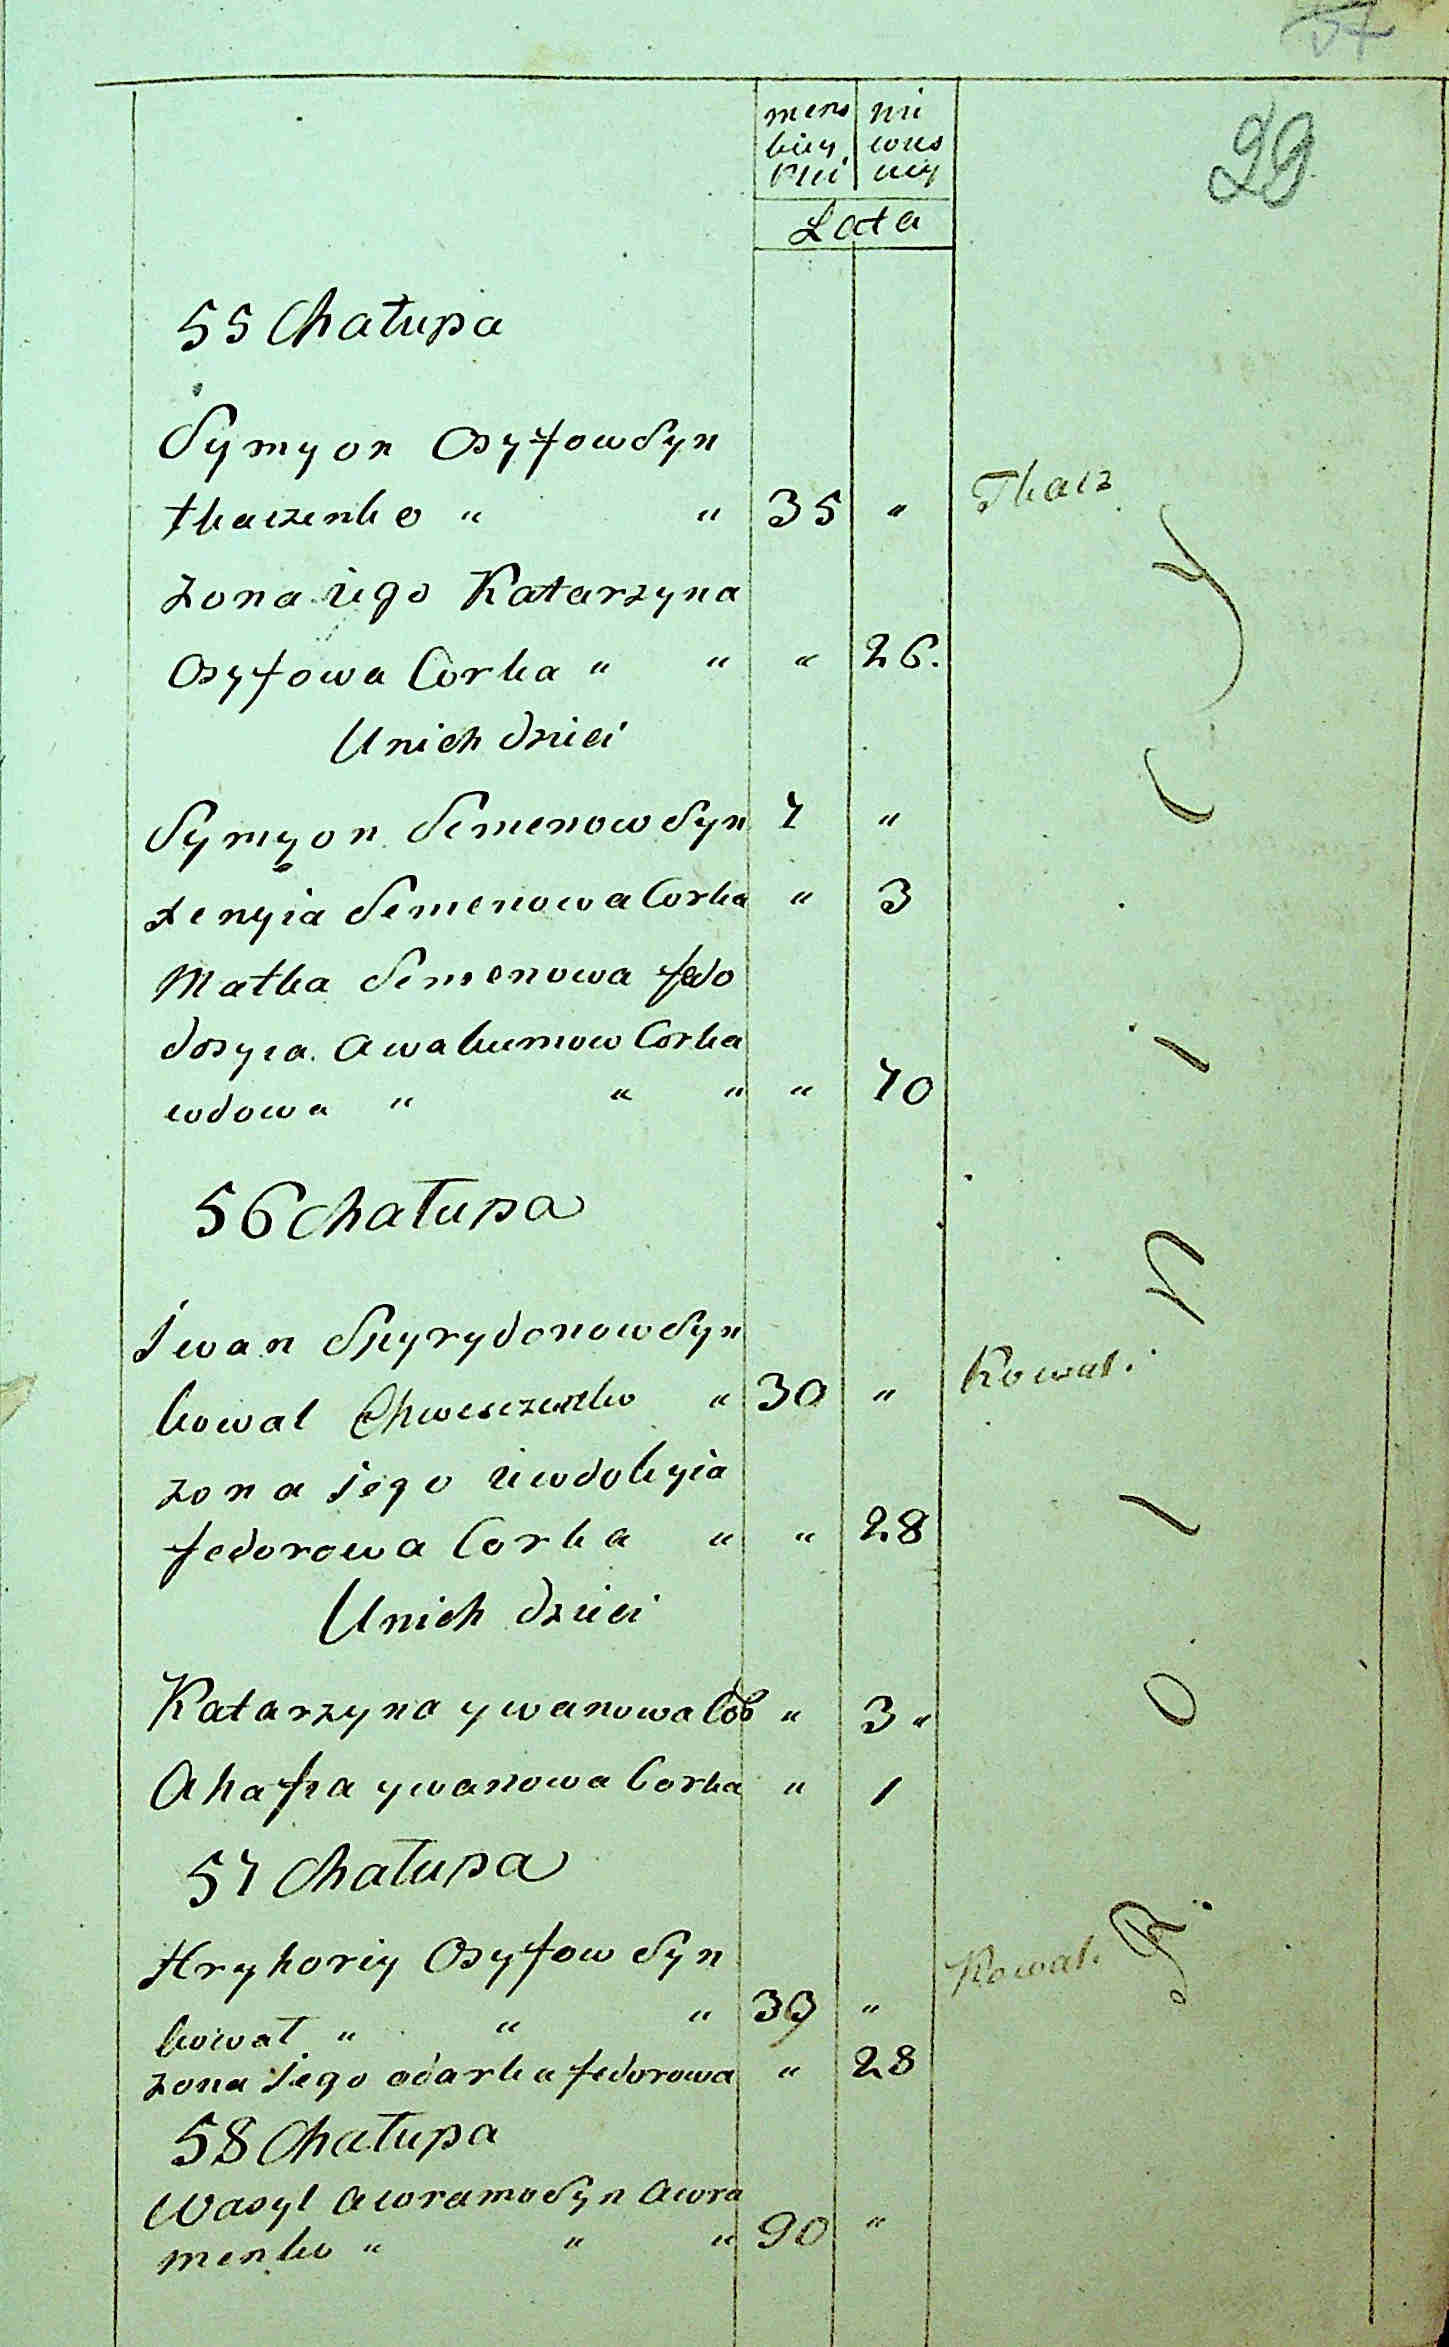 29
mens ni
kiey wies
Płci ciey
Lata
55 Chałupa
Symyon Osyfow Syn
tkaczenko " " 35 " Tkacz
żona iego Katarzyna
Osyfowa Corka " " " 26.
Unich dzieci
Symyon Semenow Syn 7 "
xenyia Semenowa Corka " 3
Matka Semenowa fedo
dosyia Awakumow Corka
wdowa " " " " 70
56 Chałupa
Iwan Spyrydonow Syn
kowal Chwesczenko " 30 " Kowal.
żona iego iewdokyia
fedorowa Corka " " 28
Unich dzieci
Katarzyna ywanowa Cór " 3 "
Ahafia ywanowa Corka " 1
57 Chałupa
Hryhoriy Osyfow Syn
kowal " " " 39 " Kowal.
żona iego odarka fedorowa " 28
58 Chałupa
Wasyl Awramo Syn Awra
menko " " " 90 "
Rolnicy